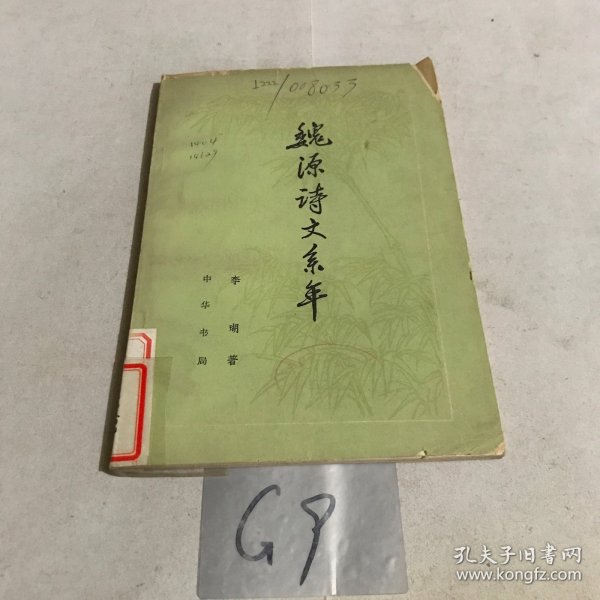 I222/008033
1404
14629
魏源诗文系年
李瑚著
中华书局
G9
孔夫子旧书网
www.kongfz.com